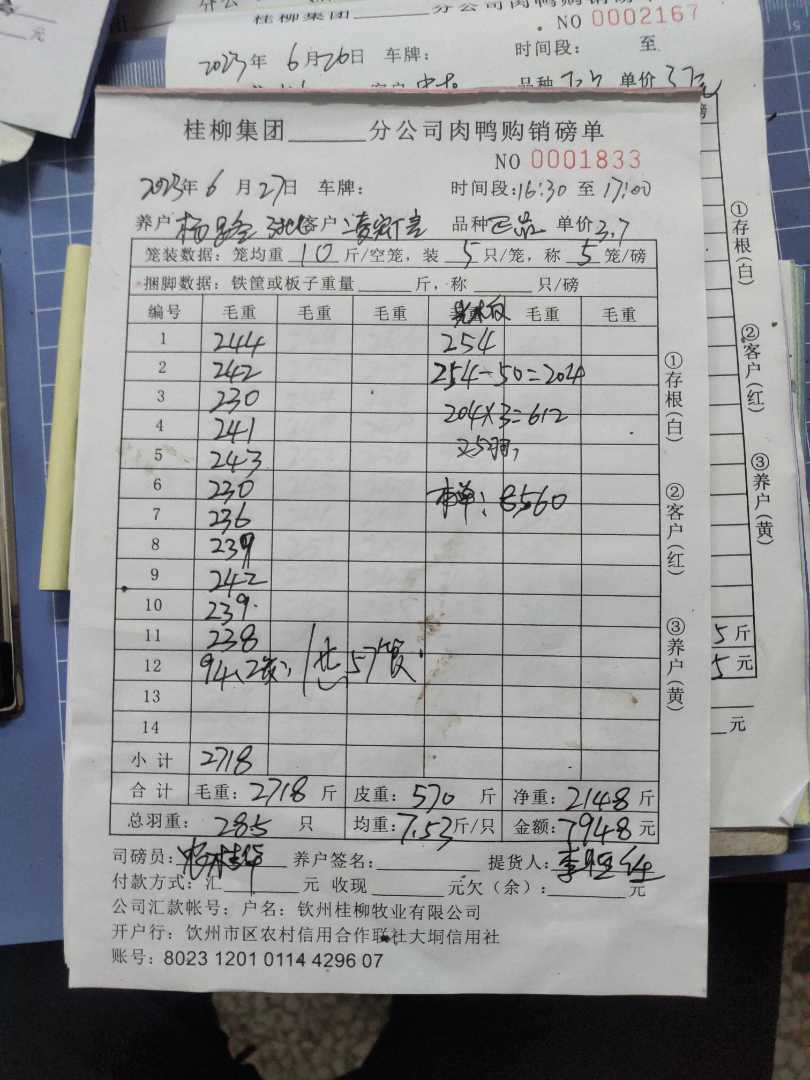 元
分公
桂柳集团 分公司肉鸭购销磅单
NO 0002167
2023年 6月26日 车牌: 时间段: 至
品种 单价 3.7元
桂柳集团______分公司肉鸭购销磅单
NO 0001833
2023年 6月27日 车牌: 时间段:16:30 至 17:00
养户: 杨 客户: 品种 正品 单价 3.7
笼装数据: 笼均重 10 斤/空笼, 装 5 只/笼, 称 5 笼/磅
捆脚数据: 铁筐或板子重量______斤, 称______只/磅
编号 毛重 毛重 毛重 毛重 毛重 毛重
1 244 254
2 242 254-50=204
3 230 204×3=612
4 241 25羽,
5 243
6 230 本单: 8560
7 236
8 239
9 242
10 239.
11 238
12 94(2笼), 共57笼.
13
14
小计 2718
合计 毛重: 2718 斤 皮重: 570 斤 净重: 2148 斤
总羽重: 285 只 均重: 7.53斤/只 金额: 7948 元
司磅员: 养户签名:______ 提货人: 李
付款方式: 汇______元 收现______元欠(余):______元
公司汇款帐号: 户名: 钦州桂柳牧业有限公司
开户行: 饮州市区农村信用合作联社大垌信用社
账号: 8023 1201 0114 4296 07
①存根(白)
②客户(红)
③养户(黄)
磅
①存根(白)
②客户(红)
③养户(黄)
5 斤
5 元
元